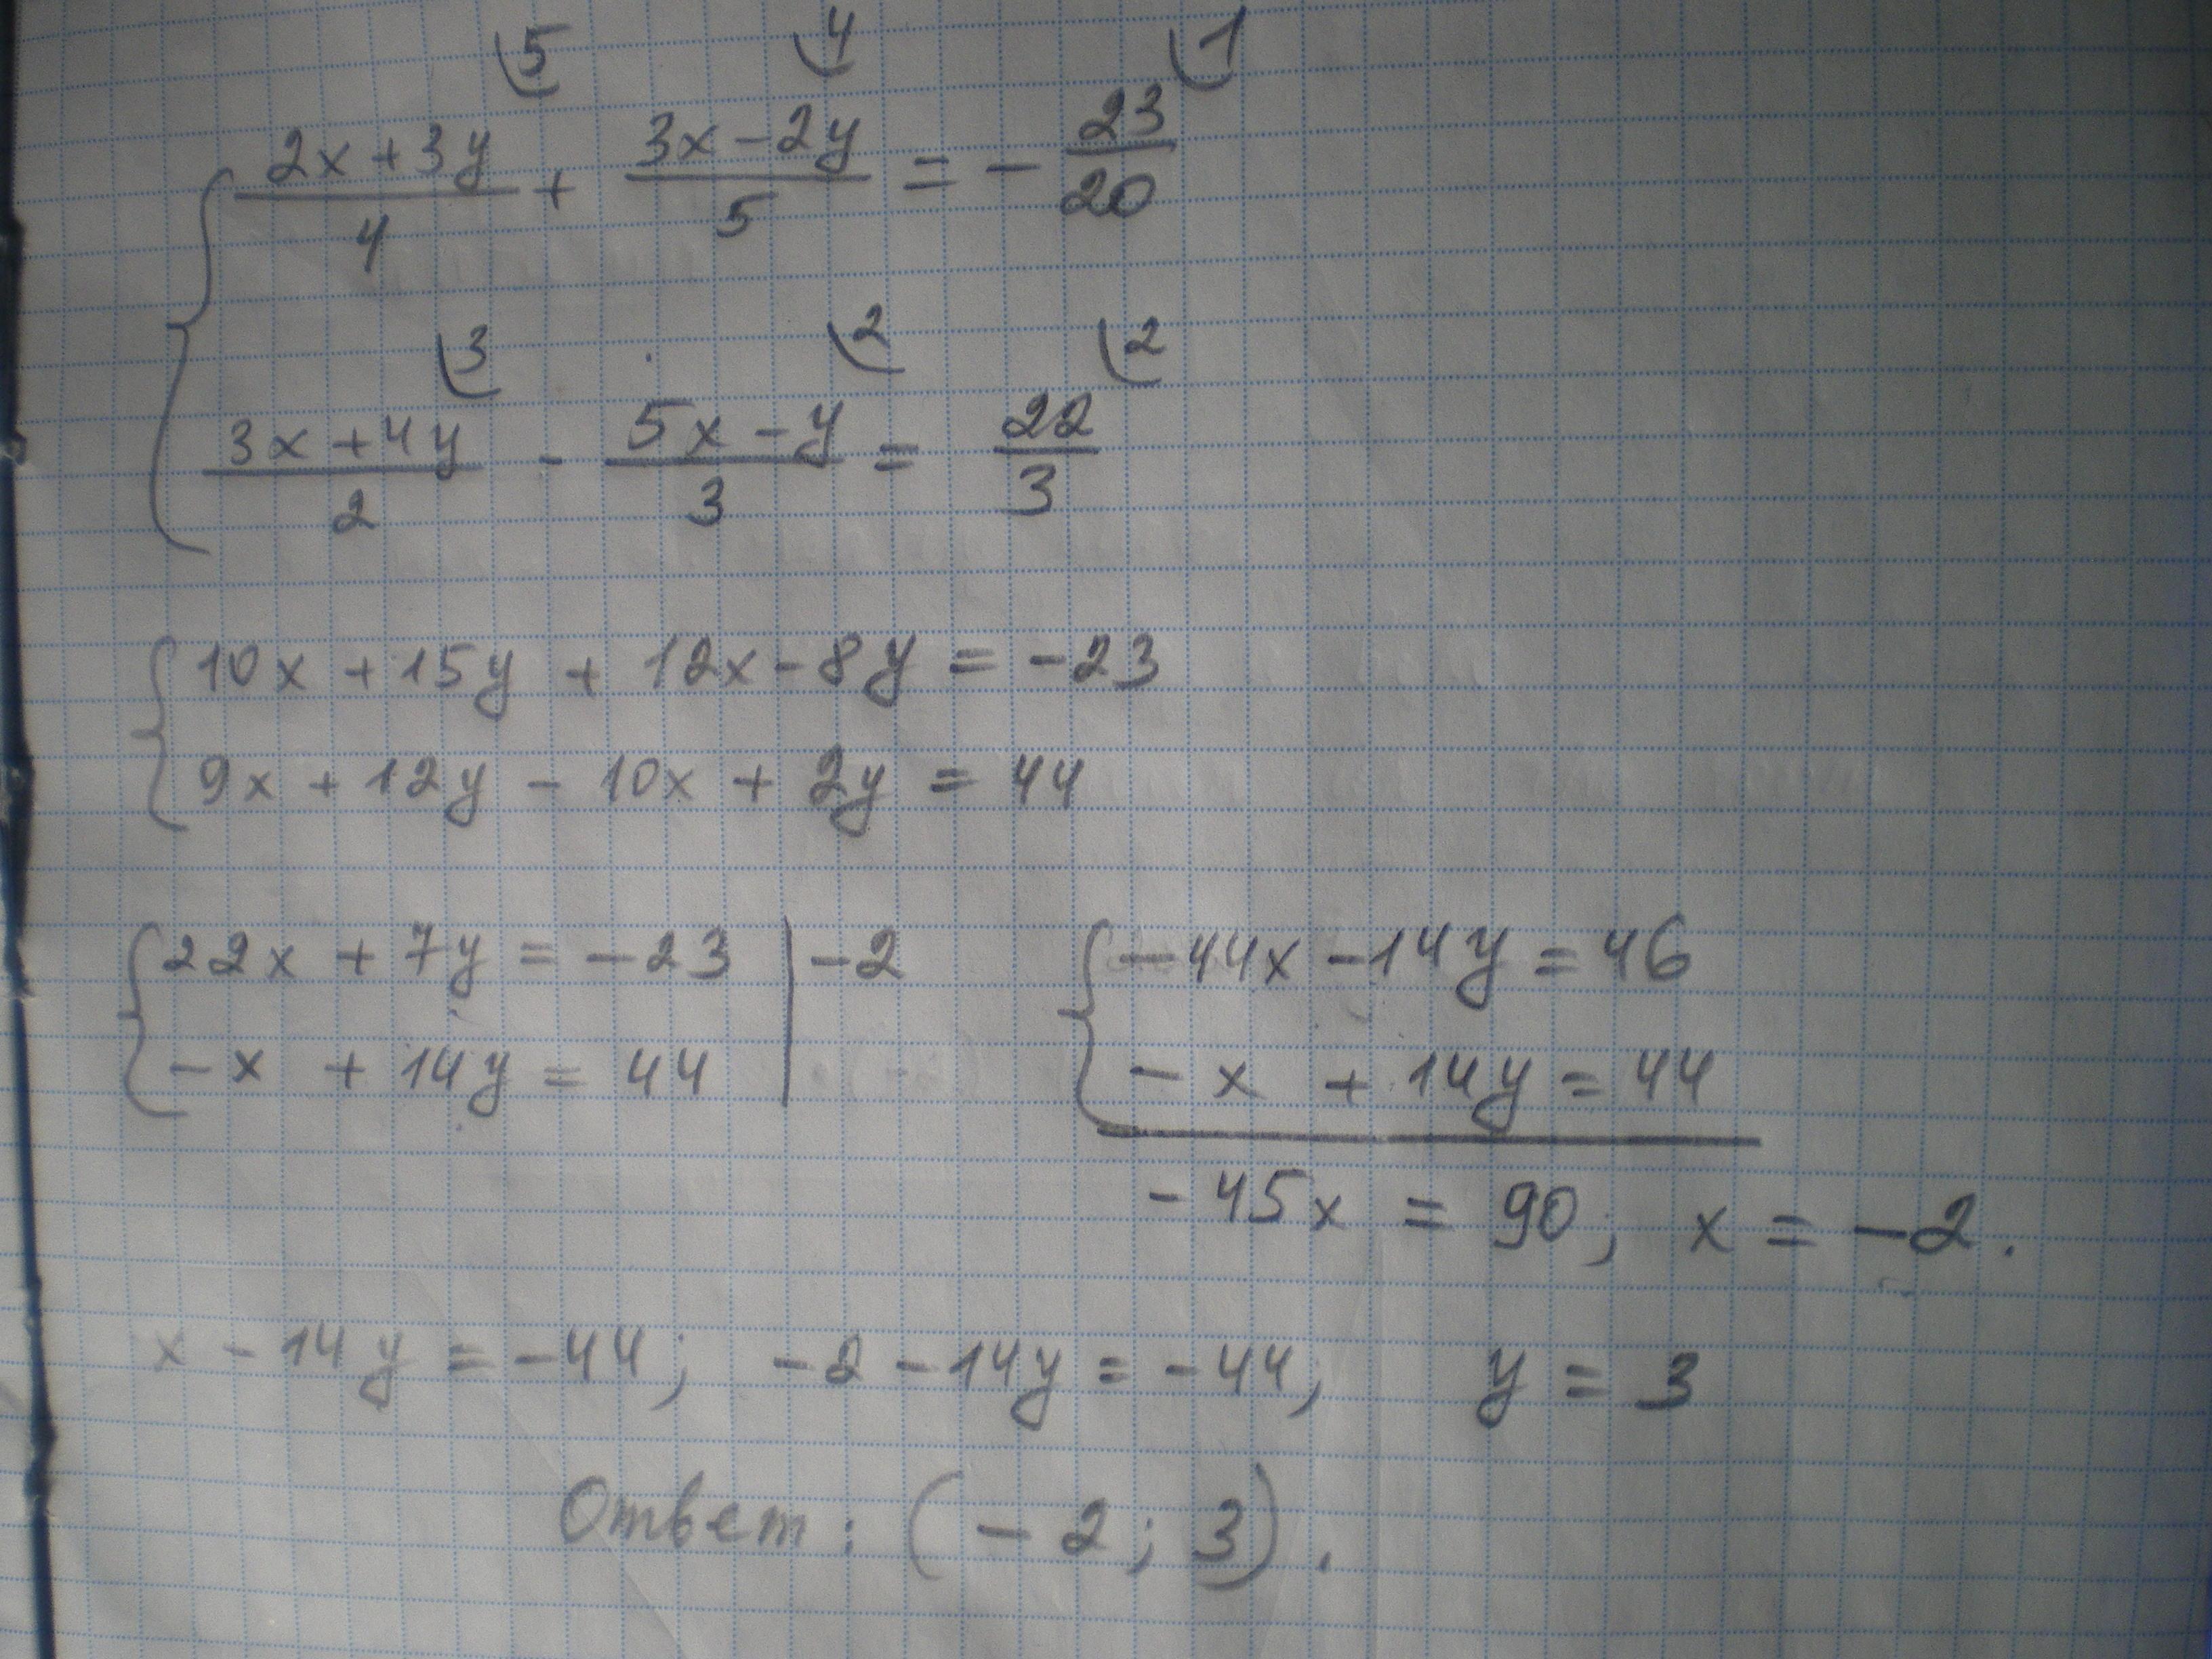 5 4 1
2x + 3y / 4 + 3x - 2y / 5 = - 23 / 20
3 2 2
3x + 4y / 2 - 5x - y / 3 = 22 / 3
10x + 15y + 12x - 8y = -23
9x + 12y - 10x + 2y = 44
22x + 7y = -23 | -2
-x + 14y = 44
-44x - 14y = 46
-x + 14y = 44
-45x = 90; x = -2.
x - 14y = -44; -2 - 14y = -44; y = 3
Ответ: (-2; 3).